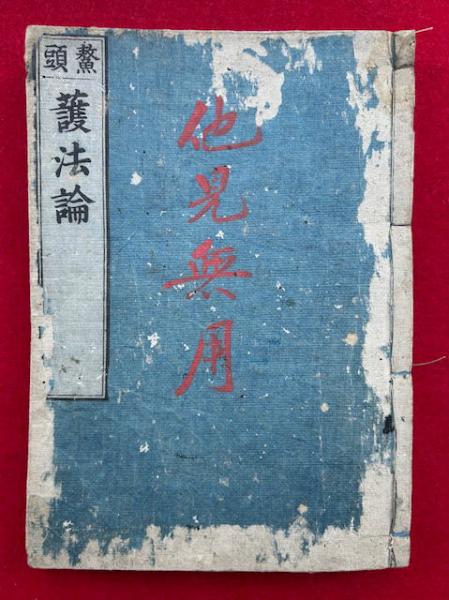 鼇頭
護法論
他見無用